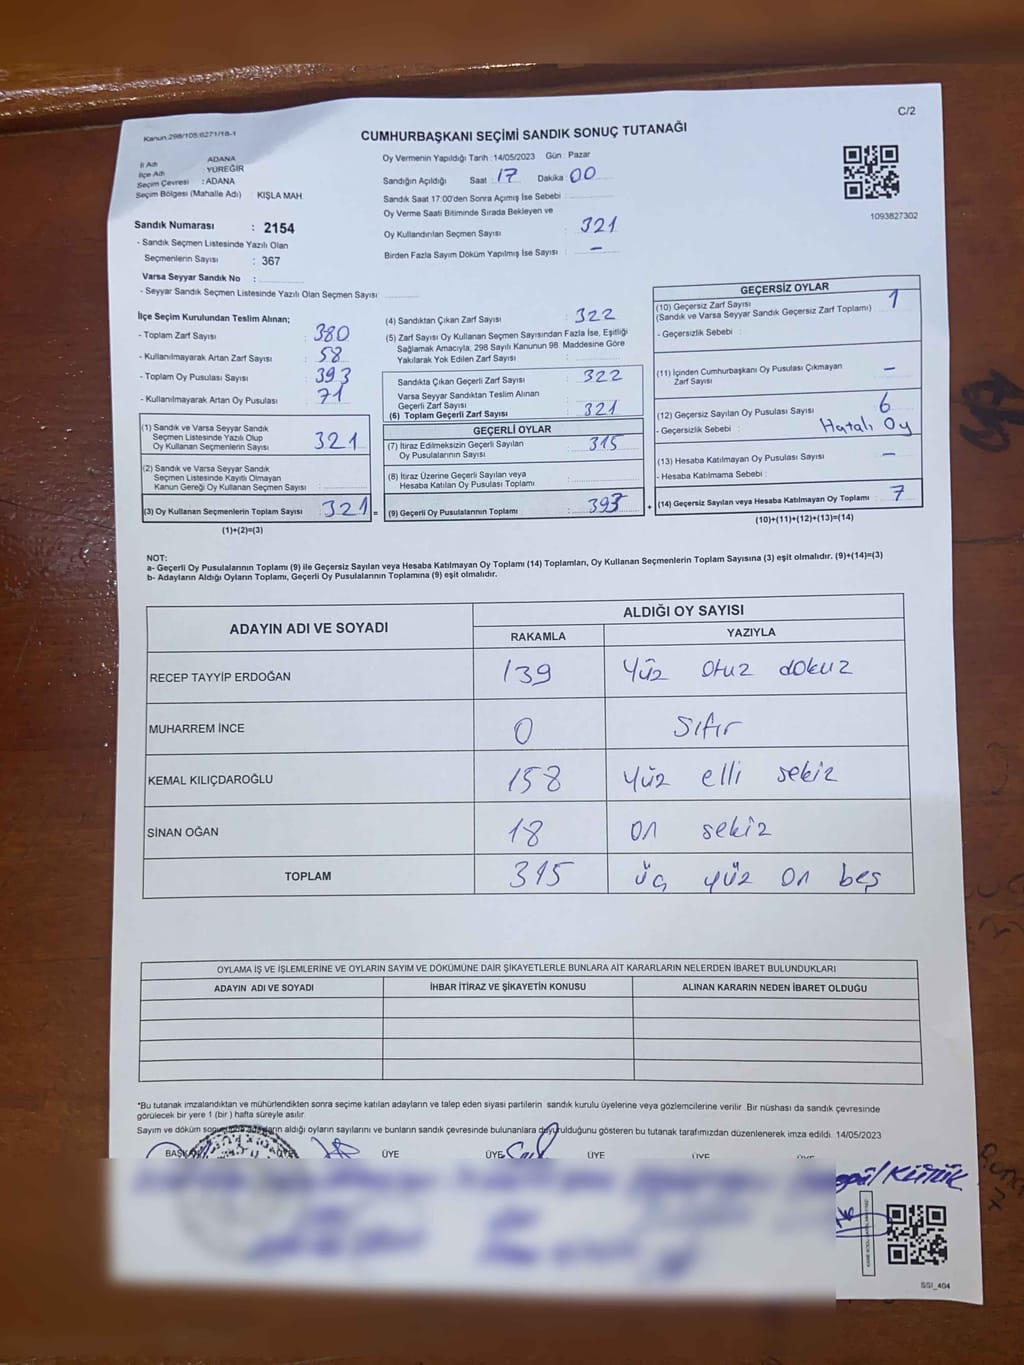 C/2
Kanun:298/105:6271/18-1
CUMHURBAŞKANI SEÇİMİ SANDIK SONUÇ TUTANAĞI
İl Adı ADANA
İlçe Adı : YÜREĞİR
Seçim Çevresi : ADANA
Seçim Bölgesi (Mahalle Adı) KIŞLA MAH
Sandık Numarası : 2154
- Sandık Seçmen Listesinde Yazılı Olan
Seçmenlerin Sayısı : 367
Varsa Seyyar Sandık No :
- Seyyar Sandık Seçmen Listesinde Yazılı Olan Seçmen Sayısı
Oy Vermenin Yapıldığı Tarih : 14/05/2023 Gün : Pazar
Sandığın Açıldığı Saat : 17 Dakika 00
Sandık Saat 17:00'den Sonra Açımış İse Sebebi
Oy Verme Saati Bitiminde Sırada Bekleyen ve
Oy Kullandırılan Seçmen Sayısı : 321
Birden Fazla Sayım Döküm Yapılmış İse Sayısı : –
1093827302
İlçe Seçim Kurulundan Teslim Alınan;
- Toplam Zarf Sayısı : 380
- Kullanılmayarak Artan Zarf Sayısı : 58
- Toplam Oy Pusulası Sayısı : 393
- Kullanılmayarak Artan Oy Pusulası : 71
(1) Sandık ve Varsa Seyyar Sandık
Seçmen Listesinde Yazılı Olup
Oy Kullanan Seçmenlerin Sayısı : 321
(2) Sandık ve Varsa Seyyar Sandık
Seçmen Listesinde Kayıtlı Olmayan
Kanun Gereği Oy Kullanan Seçmen Sayısı :
(3) Oy Kullanan Seçmenlerin Toplam Sayısı : 321 =
(1)+(2)=(3)
(4) Sandıktan Çıkan Zarf Sayısı : 322
(5) Zarf Sayısı Oy Kullanan Seçmen Sayısından Fazla İse, Eşitliği
Sağlamak Amacıyla, 298 Sayılı Kanunun 98. Maddesine Göre
Yakılarak Yok Edilen Zarf Sayısı :
Sandıkta Çıkan Geçerli Zarf Sayısı : 322
Varsa Seyyar Sandıktan Teslim Alınan
Geçerli Zarf Sayısı
(6) Toplam Geçerli Zarf Sayısı : 321
GEÇERLİ OYLAR
(7) İtiraz Edilmeksizin Geçerli Sayılan
Oy Pusulalarının Sayısı : 315
(8) İtiraz Üzerine Geçerli Sayılan veya
Hesaba Katılan Oy Pusulası Toplamı :
(9) Geçerli Oy Pusulalarının Toplamı : 393 +
GEÇERSİZ OYLAR
(10) Geçersiz Zarf Sayısı 1
(Sandık ve Varsa Seyyar Sandık Geçersiz Zarf Toplamı) :
- Geçersizlik Sebebi :
(11) İçinden Cumhurbaşkanı Oy Pusulası Çıkmayan
Zarf Sayısı : –
(12) Geçersiz Sayılan Oy Pusulası Sayısı : 6
- Geçersizlik Sebebi : Hatalı Oy
(13) Hesaba Katılmayan Oy Pusulası Sayısı : –
- Hesaba Katılmama Sebebi :
(14) Geçersiz Sayılan veya Hesaba Katılmayan Oy Toplamı : 7
(10)+(11)+(12)+(13)=(14)
NOT:
a- Geçerli Oy Pusulalarının Toplamı (9) ile Geçersiz Sayılan veya Hesaba Katılmayan Oy Toplamı (14) Toplamları, Oy Kullanan Seçmenlerin Toplam Sayısına (3) eşit olmalıdır. (9)+(14)=(3)
b- Adayların Aldığı Oyların Toplamı, Geçerli Oy Pusulalarının Toplamına (9) eşit olmalıdır.
ADAYIN ADI VE SOYADI ALDIĞI OY SAYISI
RAKAMLA YAZIYLA
RECEP TAYYİP ERDOĞAN 139 Yüz otuz dokuz
MUHARREM İNCE 0 Sıfır
KEMAL KILIÇDAROĞLU 158 Yüz elli sekiz
SİNAN OĞAN 18 on sekiz
TOPLAM 315 üç yüz on beş
OYLAMA İŞ VE İŞLEMLERİNE VE OYLARIN SAYIM VE DÖKÜMÜNE DAİR ŞİKAYETLERLE BUNLARA AİT KARARLARIN NELERDEN İBARET BULUNDUKLARI
ADAYIN ADI VE SOYADI İHBAR İTİRAZ VE ŞİKAYETİN KONUSU ALINAN KARARIN NEDEN İBARET OLDUĞU
*Bu tutanak imzalandıktan ve mühürlendikten sonra seçime katılan adayların ve talep eden siyasi partilerin sandık kurulu üyelerine veya gözlemcilerine verilir. Bir nüshası da sandık çevresinde
görülecek bir yere 1 (bir) hafta süreyle asılır.
Sayım ve döküm adayların aldığı oyların sayılarını ve bunların sandık çevresinde bulunanlara duyurulduğunu gösteren bu tutanak tarafımızdan düzenlenerek imza edildi. 14/05/2023
ÜYE ÜYE ÜYE ÜYE
SSI_404